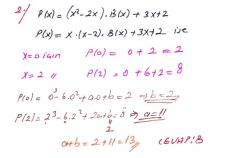 2-) P(x) = (x²-2x).B(x)+3x+2
P(x) = x.(x-2).B(x)+3x+2 ise
x=0 için P(0) = 0+2=2
x=2 " P(2) = 0+6+2=8
P(0)=0³-6.0²+a.0+b=2 ⇒ b=2
P(2)=2³-6.2²+2a+b=8 ⇒ a=11
2
a+b=2+11=13 CEVAP:B